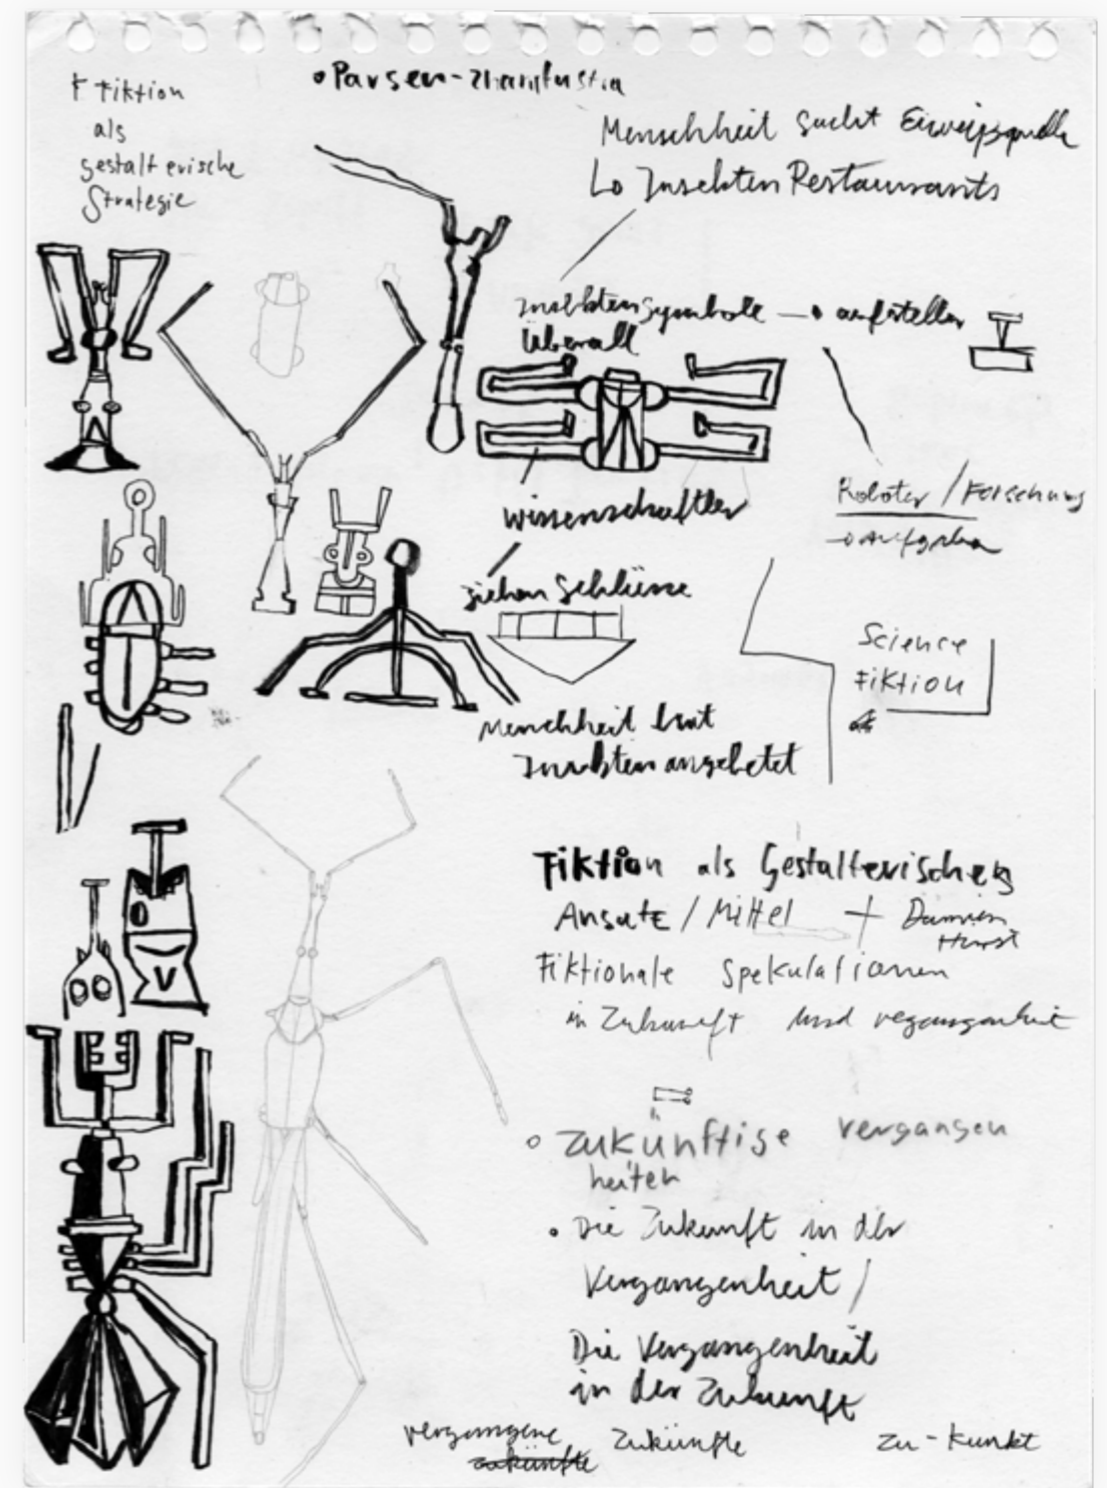 Fiktion
als
gestalterische
Strategie
Parsen-
Menschheit sucht Eiweißquelle
Lo Insekten Restaurants
Insektensymbole → aufstellen
überall
Wissenschaftler
ziehen Schlüsse
Roboter / Forschung
→ Aufgaben
Science
Fiktion
Menschheit hat
Insekten angebetet
Fiktion als Gestalterisches
Ansatz / Mittel + Damien
Hirst
Fiktionale Spekulationen
in Zukunft und vegangenheit
zukünftige vergangen
heiten
Die Zukunft in der
Vergangenheit /
Die Vergangenheit
in der Zukunft
vergangene Zukünfte
zukünfte
Zu-Kunkt